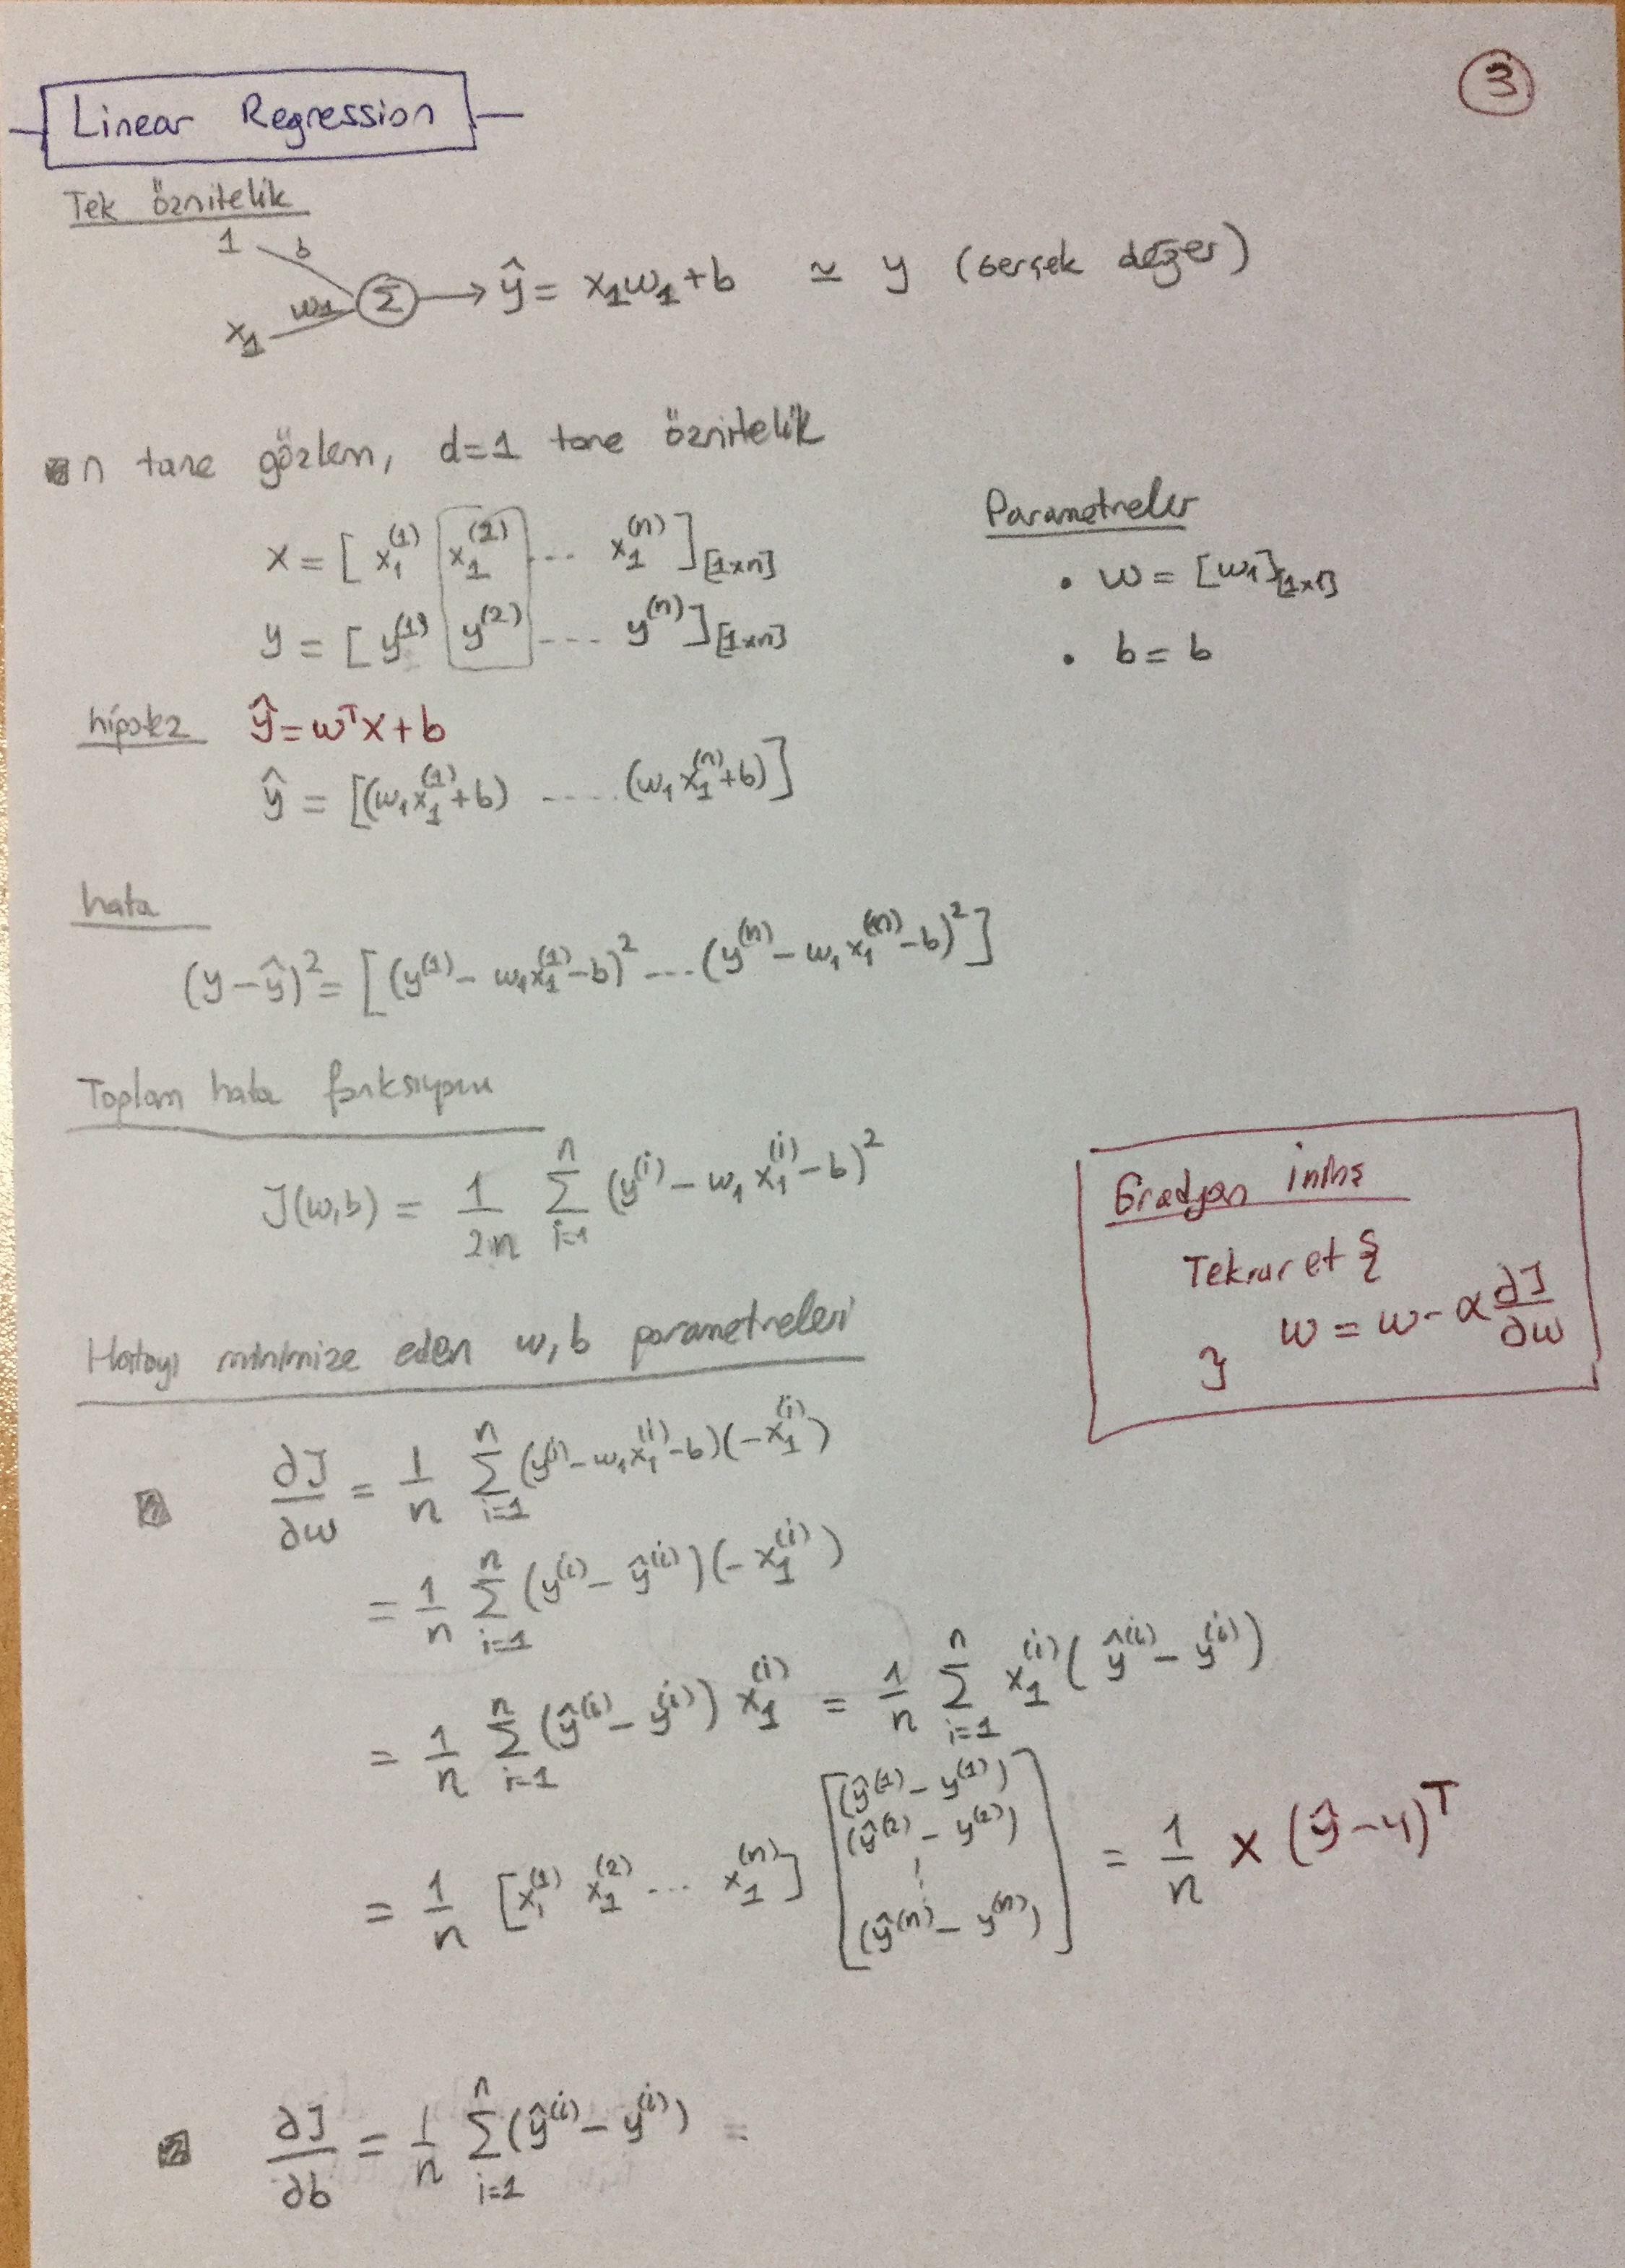 3
Linear Regression
Tek öznitelik
1 b
x₁ w₁ Σ → ŷ = x₁w₁+b ≃ y (Gerçek değer)
n tane gözlem, d=1 tane öznitelik
x = [ x₁⁽¹⁾ x₁⁽²⁾ ... x₁⁽ⁿ⁾ ] [1xn]
y = [ y⁽¹⁾ y⁽²⁾ .... y⁽ⁿ⁾ ] [1xn]
Parametreler
• w = [w₁] [1x1]
• b = b
hipotez ŷ = wᵀx+b
ŷ = [(w₁x₁⁽¹⁾+b) ..... (w₁x₁⁽ⁿ⁾+b)]
hata
(y-ŷ)² = [(y⁽¹⁾ - w₁x₁⁽¹⁾-b)² ... (y⁽ⁿ⁾ - w₁x₁⁽ⁿ⁾-b)²]
Toplam hata fonksiyonu
J(w,b) = 1/2n Σ i=1 n (y⁽ⁱ⁾ - w₁x₁⁽ⁱ⁾-b)²
Gradyan iniş
Tekrar et {
w = w - α ∂J/∂w
}
Hatayı minimize eden w,b parametreleri
∂J/∂w = 1/n Σ i=1 n (y⁽ⁱ⁾ - w₁x₁⁽ⁱ⁾-b)(-x₁⁽ⁱ⁾)
= 1/n Σ i=1 n (y⁽ⁱ⁾ - ŷ⁽ⁱ⁾)(-x₁⁽ⁱ⁾)
= 1/n Σ i=1 n (ŷ⁽ⁱ⁾ - y⁽ⁱ⁾) x₁⁽ⁱ⁾ = 1/n Σ i=1 n x₁⁽ⁱ⁾(ŷ⁽ⁱ⁾ - y⁽ⁱ⁾)
= 1/n [x₁⁽¹⁾ x₁⁽²⁾ ... x₁⁽ⁿ⁾] [(ŷ⁽¹⁾ - y⁽¹⁾) (ŷ⁽²⁾ - y⁽²⁾) ⋮ (ŷ⁽ⁿ⁾ - y⁽ⁿ⁾)] = 1/n x (ŷ-y)ᵀ
∂J/∂b = 1/n Σ i=1 n (ŷ⁽ⁱ⁾ - y⁽ⁱ⁾) =